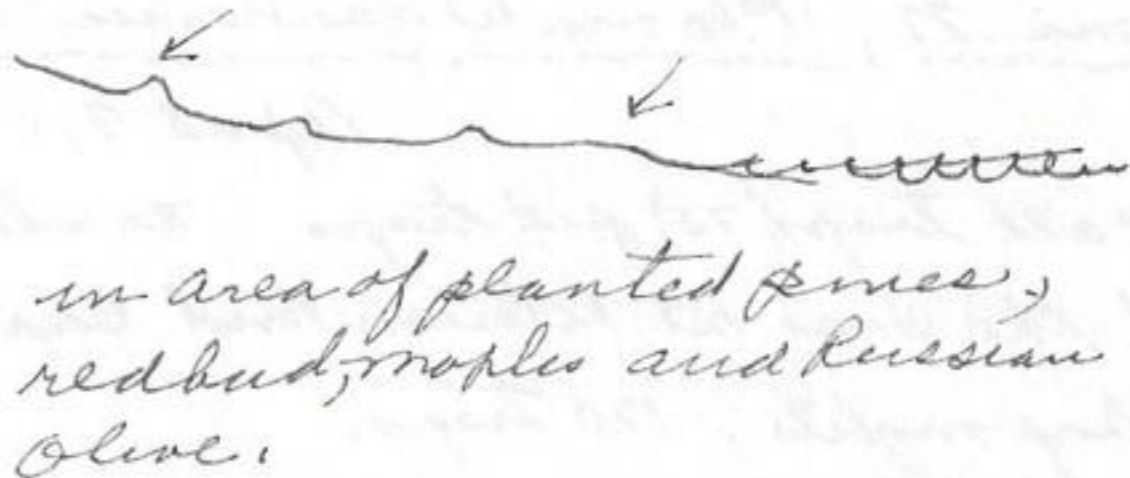 in area of planted pines,
redbud, maples and Russian
Olive.